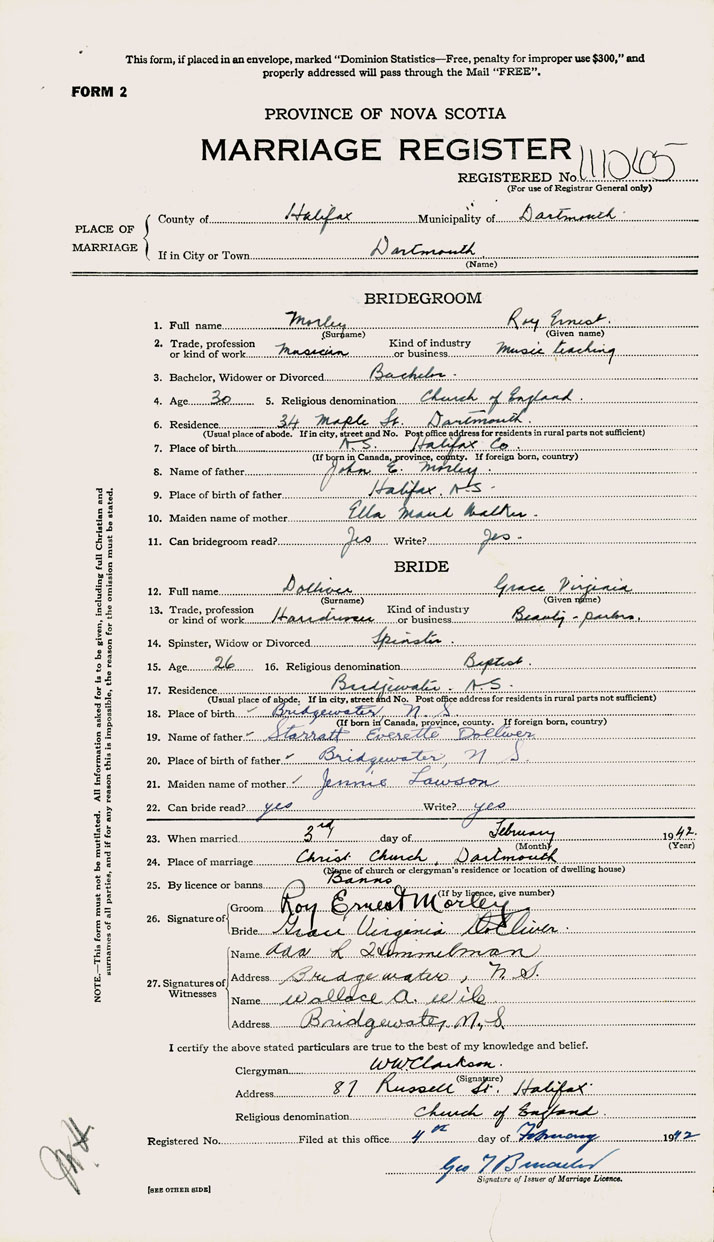 This form, if placed in an envelope, marked "Dominion Statistics—Free, penalty for improper use $300," and
properly addressed will pass through the Mail "FREE".
FORM 2
PROVINCE OF NOVA SCOTIA
MARRIAGE REGISTER
REGISTERED No.
(For use of Registrar General only)
PLACE OF MARRIAGE
County of Halifax Municipality of Dartmouth.
If in City or Town Dartmouth
(Name)
BRIDEGROOM
1. Full name Morley Roy Ernest.
(Surname) (Given name)
2. Trade, profession or kind of work musician Kind of industry or business music teaching
3. Bachelor, Widower or Divorced Bachelor.
4. Age 30 5. Religious denomination Church of England.
6. Residence 34 Maple St. Dartmouth.
(Usual place of abode. If in city, street and No. Post office address for residents in rural parts not sufficient)
7. Place of birth N.S. Halifax Co.
(If born in Canada, province, county. If foreign born, country)
8. Name of father John E. Morley.
9. Place of birth of father Halifax. N.S.
10. Maiden name of mother Ella Maud Walker.
11. Can bridegroom read? Yes Write? Yes.
BRIDE
12. Full name Dolliver Grace Virginia
(Surname) (Given name)
13. Trade, profession or kind of work Kind of industry or business Beauty-parlors.
14. Spinster, Widow or Divorced Spinster.
15. Age 26 16. Religious denomination Baptist.
17. Residence Bridgewater. N.S.
(Usual place of abode. If in city, street and No. Post office address for residents in rural parts not sufficient)
18. Place of birth Bridgewater, N.S.
(If born in Canada, province, county. If foreign born, country)
19. Name of father Starratt Everette Dolliver
20. Place of birth of father Bridgewater, N S.
21. Maiden name of mother Jennie Lawson
22. Can bride read? yes Write? yes
23. When married 3rd day of February 1942.
(Month) (Year)
24. Place of marriage Christ Church, Dartmouth
(Name of church or clergyman's residence or location of dwelling house)
25. By licence or banns Banns
(If by licence, give number)
26. Signature of
Groom Roy Ernest Morley
Bride Grace Virginia Dolliver.
27. Signatures of Witnesses
Name Ada R Zimmelman
Address Bridgewater, N.S.
Name Wallace A. Wile
Address Bridgewater, N.S.
I certify the above stated particulars are true to the best of my knowledge and belief.
Clergyman WWClarkson.
(Signature)
Address 87 Russell St. Halifax.
Religious denomination Church of England.
Registered No. Filed at this office 4th day of February 1942
Geo
Signature of Issuer of Marriage Licence.
[SEE OTHER SIDE]
NOTE.—This form must not be mutilated. All information asked for is to be given, including full Christian and
surnames of all parties, and if for any reason this is impossible, the reason for the omission must be stated.